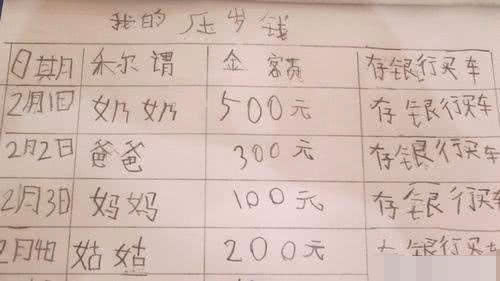 我的压岁钱
日期 称谓 金额 存银行买车
2月1日 奶奶 500元 存银行买车
2月2日 爸爸 300元 存银行买车
2月3日 妈妈 100元 存银行买车
2月4日 姑姑 200元 存银行买车